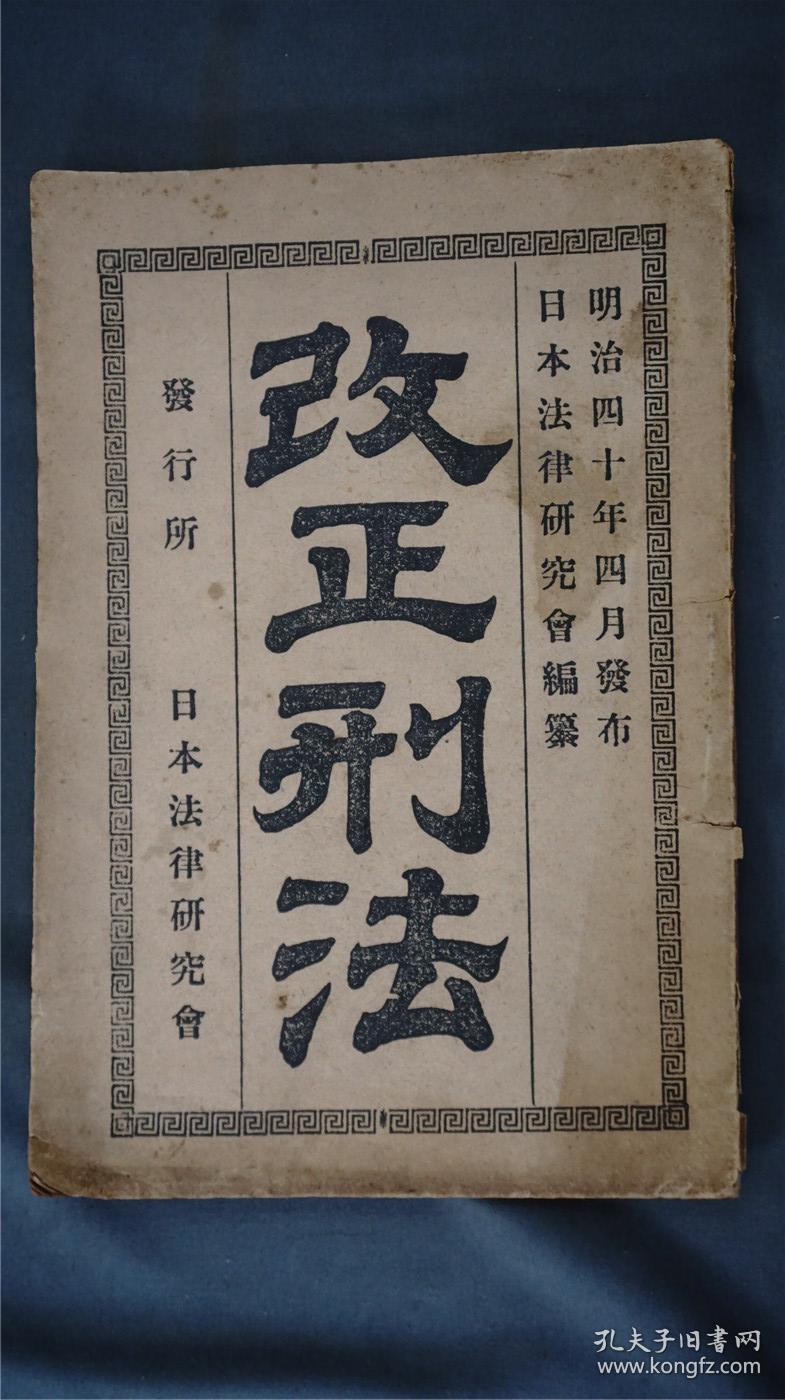 明治四十年四月發布
日本法律研究會編纂
改正刑法
發行所 日本法律研究會
孔夫子旧书网
www.kongfz.com